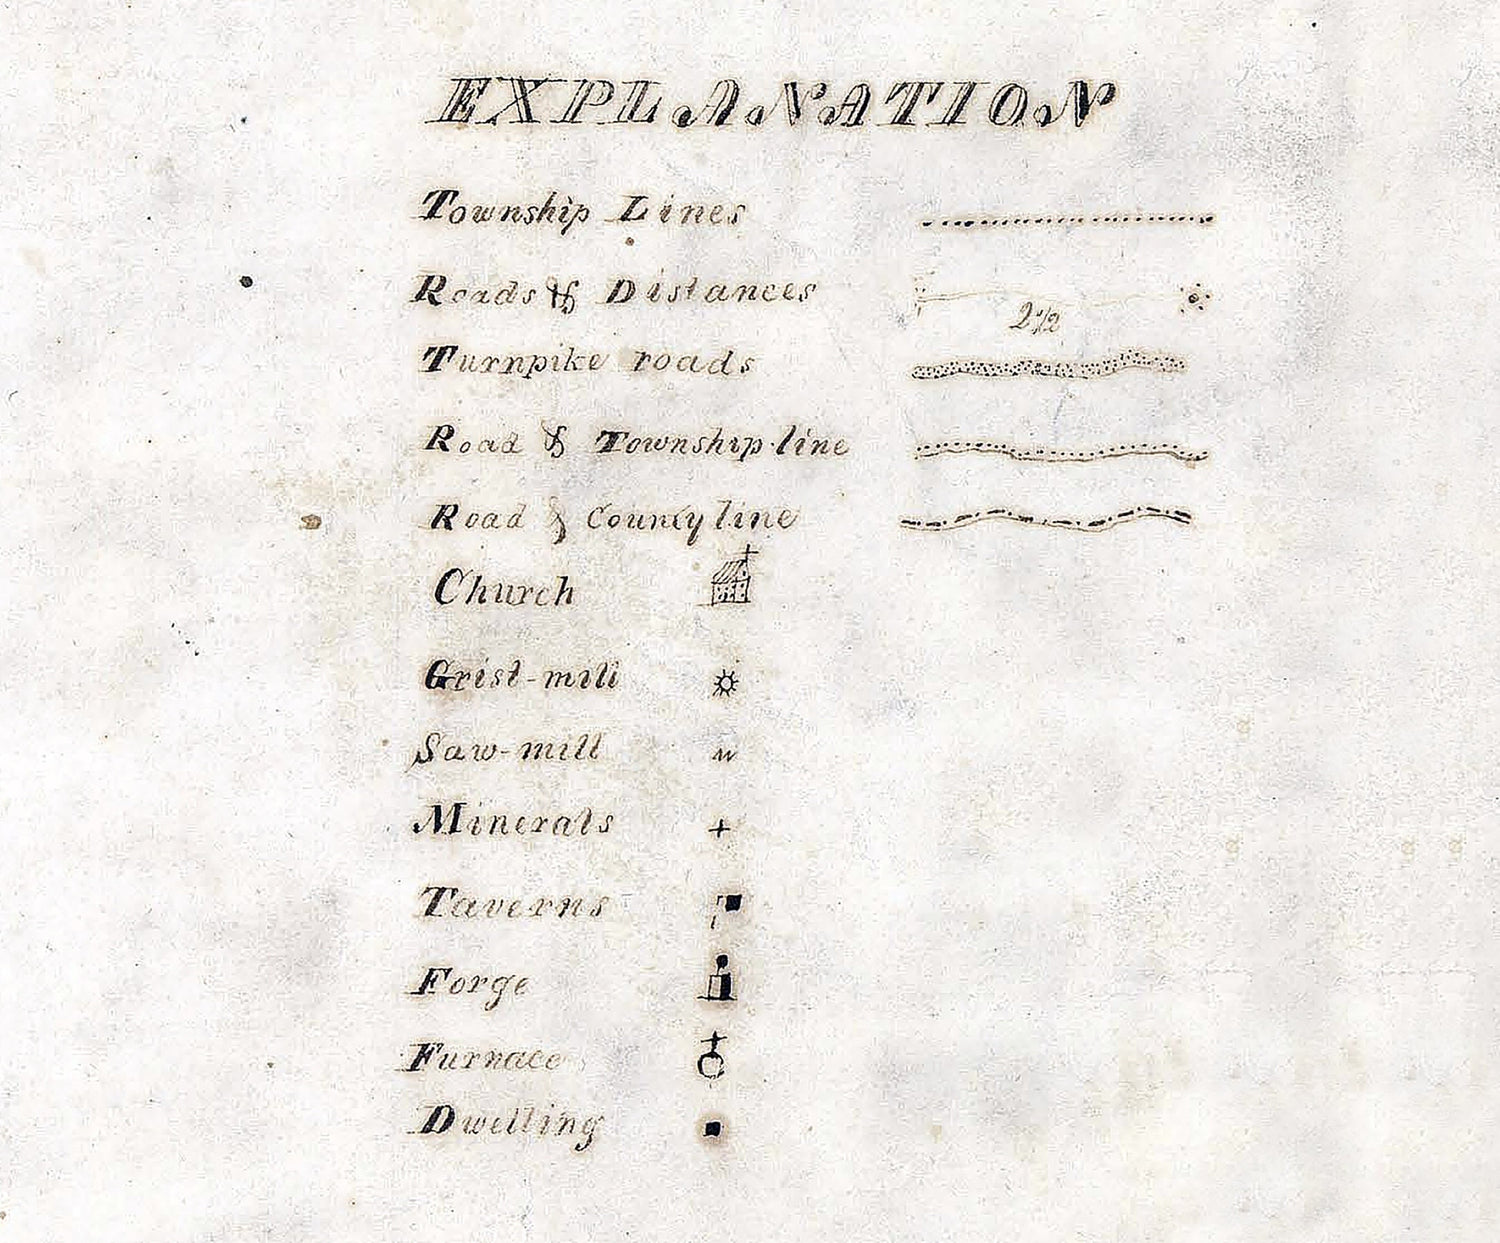 EXPLANATION
Township Lines
Roads & Distances
2 1/2
Turnpike roads
Road & Township line
Road & County line
Church
Grist-mill
Saw-mill
Minerals
Taverns
Forge
Furnace
Dwelling